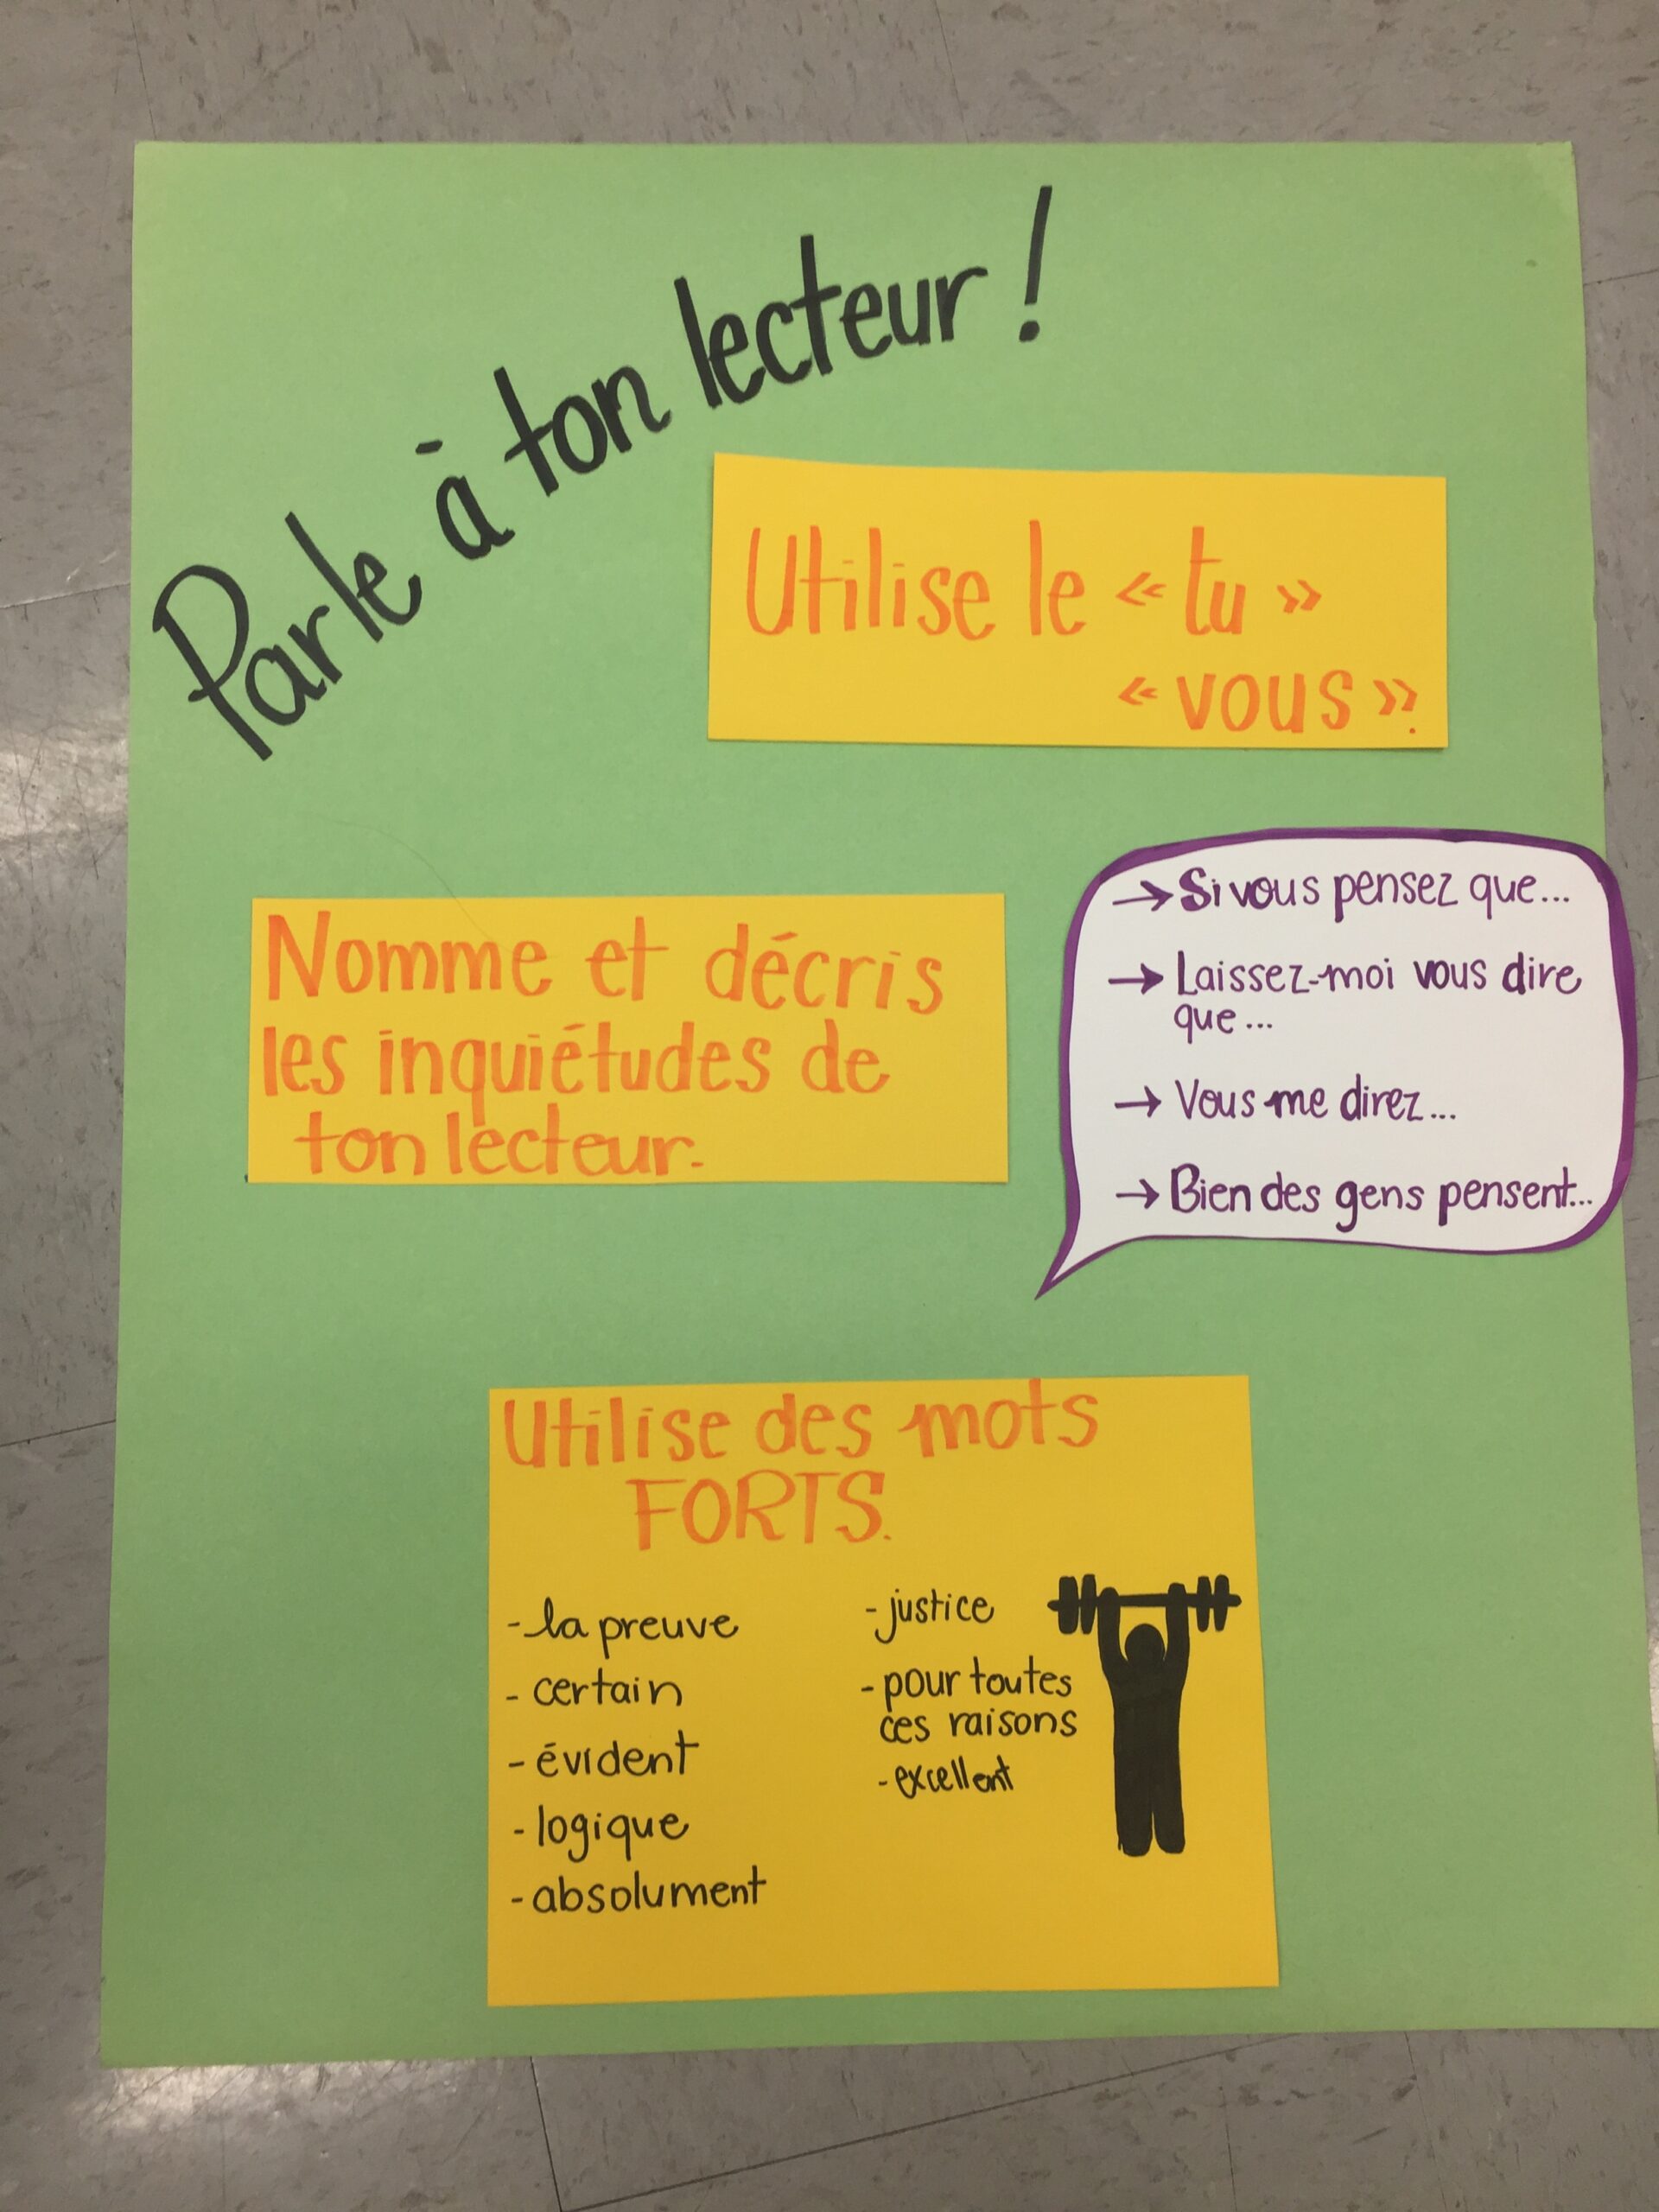 Parle à ton lecteur !
Utilise le « tu »
« vous ».
Nomme et décris
les inquiétudes de
ton lecteur.
→ Si vous pensez que...
→ Laissez-moi vous dire
que...
→ Vous me direz...
→ Bien des gens pensent...
Utilise des mots
FORTS.
- la preuve
- certain
- évident
- logique
- absolument
- justice
- pour toutes
ces raisons
- excellent